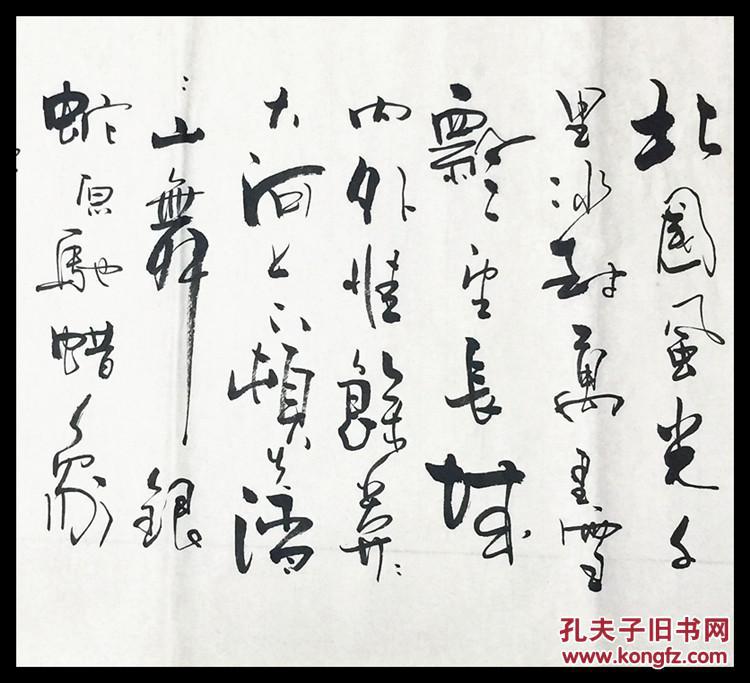 北國風光千
里冰封萬里雪
飄々望長城
内外惟餘莽々
大河上下頓失滔
々山舞銀
蛇原馳蜡象
孔夫子旧书网
www.kongfz.com